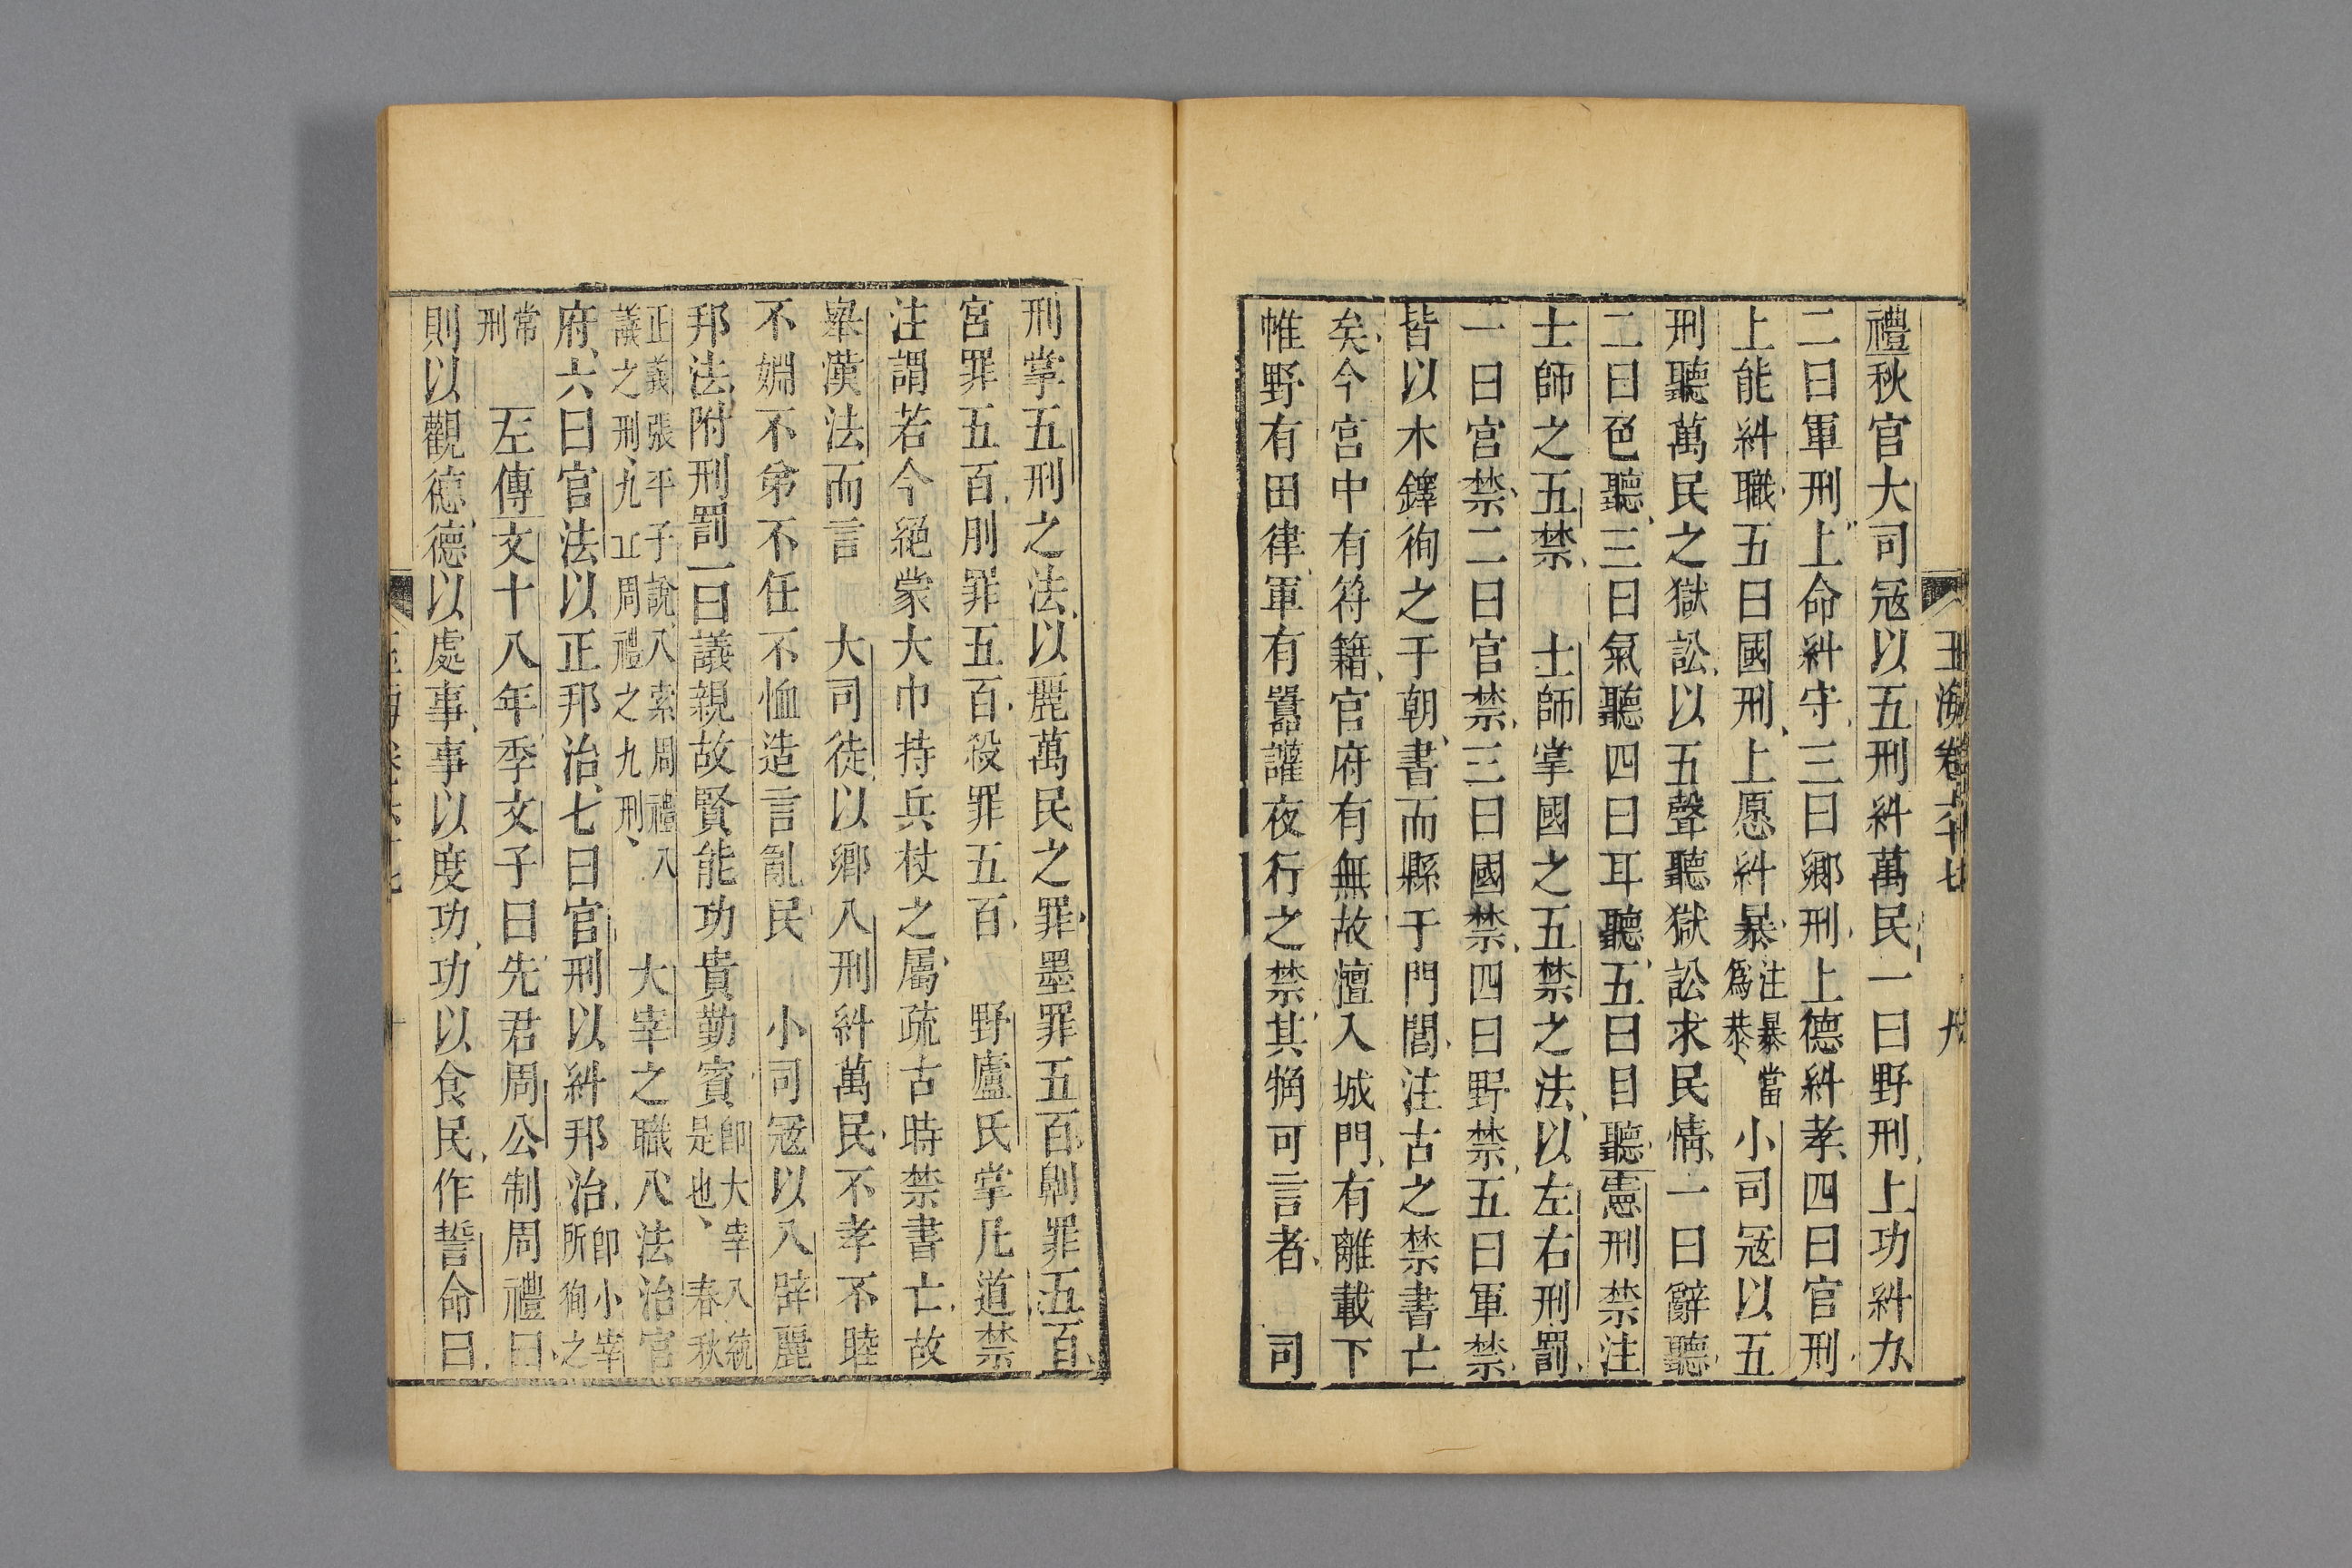 玉海卷六十七
禮秋官大司冦以五刑糾萬民一曰野刑上功糾力
二曰軍刑上命糾守三曰鄉刑上德糾孝四曰官刑
上能糾職五曰國刑上愿糾暴注暴當爲恭小司冦以五
刑聽萬民之獄訟以五聲聽獄訟求民情一曰辭聽
二曰色聽三曰氣聽四曰耳聽五曰目聽憲刑禁注
士師之五禁士師掌國之五禁之法以左右刑罰
一曰宫禁二曰官禁三曰國禁四曰野禁五曰軍禁
皆以木鐸徇之于朝書而縣于門閭注古之禁書亡
矣今宫中有符籍官府有無故澶入城門有離載下
帷野有田律軍有囂讙夜行之禁其觕可言者司
刑掌五刑之法以麗萬民之罪墨罪五百劓罪五百
宮罪五百刖罪五百殺罪五百野廬氏掌凡道禁
注謂若今絕蒙大巾持兵杖之屬疏古時禁書亡故
舉漢法而言大司徒以鄉八刑糾萬民不孝不睦
不婣不弟不任不恤造言亂民小司冦以八辟麗
邦法附刑罰一曰議親故賢能功貴勤賓卽大宰八統是也春秋
正義張平子說八索周禮八議之刑九丘周禮之九刑大宰之職八法治官
府六曰官法以正邦治七曰官刑以糾邦治卽小宰所徇之
常刑左傳文十八年季文子曰先君周公制周禮曰
則以觀德德以處事事以度功功以食民作誓命曰